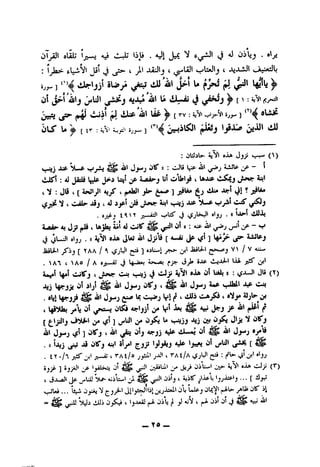 يراه . ويأذن له في الشيء لا يميل إليه . فإذا تلبث فيه يسيراً تلقاه القرآن
بالتعنيف الشديد ، والعتاب القاسي ، والنقد المر ، حتى في أقل الأشياء خطراً :
﴿ يا أيها النبي لِمَ تحرم ما أحل الله لك تبتغي مرضاة أزواجك ﴾(١) [ سورة
التحريم الآية : ١ ] ﴿ وتخفي في نفسك ما الله مبديه وتخشى الناس والله أحق أن
تخشاه ﴾(٢) [ سورة الأحزاب الآية : ٣٧ ] ﴿ عفا الله عنك لِمَ أذنت لهم حتى يتبين
لك الذين صدقوا وتعلم الكاذبين ﴾(٣) [ سورة التوبة الآية : ٤٣ ] ﴿ ما كان
(١) سبب نزول هذه الآية حادثتان :
أ – عن عائشة رضي الله عنها قالت : « كان رسول الله ﷺ يشرب عسلاً عند زينب
ابنة جحش ويمكث عندها ، فواطأت أنا وحفصة عن أيتنا دخل عليها فلتقل له : أكلت
مغافير ؟ إني أجد منك ريح مغافير [ صمغ حلو الطعم ، كريه الرائحة ] ، قال : لا ،
ولكني كنت أشرب عسلاً عند زينب ابنة جحش فلن أعود له ، وقد حلفت ، لا تخبري
بذلك أحداً » . رواه البخاري في كتاب التفسير ٤٩١٢ وغيره .
ب – عن أنس رضي الله عنه : « أن النبي ﷺ كانت له أمة يطؤها ، فلم تزل به حفصة
وعائشة حتى حرمها [ أي على نفسه ] فأنزل الله تعالى هذه الآية » . رواه النسائي في
سننه ٧ / ٧١ وصحح الحافظ ابن حجر إسناده [ فتح الباري ٩ / ٢٨٨ ] وذكر الحافظ
ابن كثير لهذا الحديث عدة طرق جزم بصحة بعضها في تفسيره ٨ / ١٨٥ ، ١٨٦ .
(٢) قال السدي : « بلغنا أن هذه الآية نزلت في زينب بنت جحش ، وكانت أمها أميمة
بنت عبد المطلب عمة رسول الله ﷺ ، وكان رسول الله ﷺ أراد أن يزوجها زيد
بن حارثة مولاه ، فكرهت ذلك ، ثم إنها رضيت بما صنع رسول الله ﷺ فزوجها إياه ،
ثم أعلم الله عز وجل نبيه ﷺ بعد أنها من أزواجه فكان يستحي أن يأمر بطلاقها ،
وكان لا يزال يكون بين زيد وزينب ما يكون من الناس [ أي من الخلاف والنزاع ]
فأمره رسول الله ﷺ أن يمسك عليه زوجه وأن يتقي الله ، وكان [ أي رسول الله
ﷺ ] يخشى الناس أن يعيبوا عليه ويقولوا تزوج امرأة ابنه وكان قد تبنى زيداً » .
رواه ابن أبي حاتم : فتح الباري ٣٨٤/٨ ، الدر المنثور ٣٨٤/٥ ، تفسير ابن كثير ٤٢٠/٦ .
(٣) نزلت هذه الآية حين استأذن فريق من المنافقين النبي ﷺ أن يتخلفوا عن الغزوة [ غزوة
تبوك ] ... واعتذروا بأعذار كاذبة ، وأذن النبي ﷺ لمن استأذنه حملاً للناس على الصدق ،
إذ كان ظاهر حالهم الإيمان وعلماً بأن المعتذرين إذا ألجئوا إلى الخروج لا يغنون شيئاً ... فعاتب
الله نبيه ﷺ في أن أذن لهم ، لأنه لو لم يأذن لهم لقعدوا ، فيكون ذلك دليلاً للنبي ﷺ =
– ٢٥ –